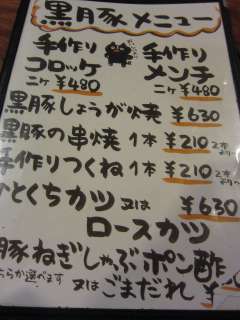 黒豚メニュー
手作り コロッケ 二ケ ¥480
手作り メンチ 二ケ ¥480
黒豚しょうが焼 ¥630
黒豚の串焼 1本 ¥210 2本より
手作りつくね 1本 ¥210 2本より
ひとくちカツ 又は ¥630
ロースカツ
豚ねぎしゃぶポン酢
ちらか選べます 又はごまだれ ¥